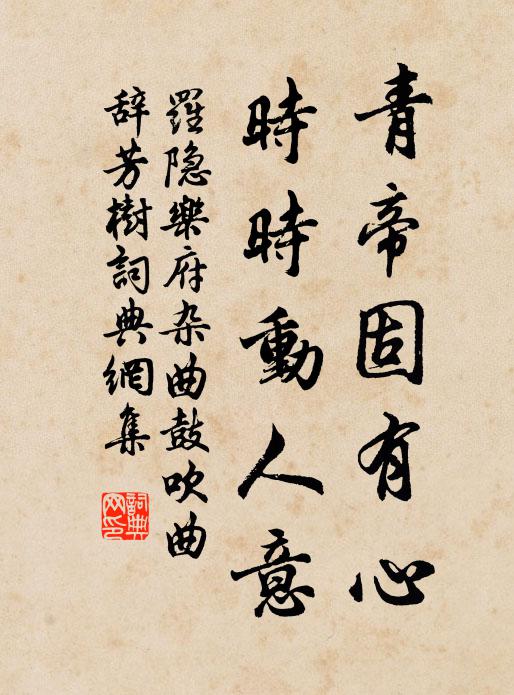 青帝固有心
時時動人意
羅隐樂府杂曲鼓吹曲
辞芳樹詞典網集
詞典网印